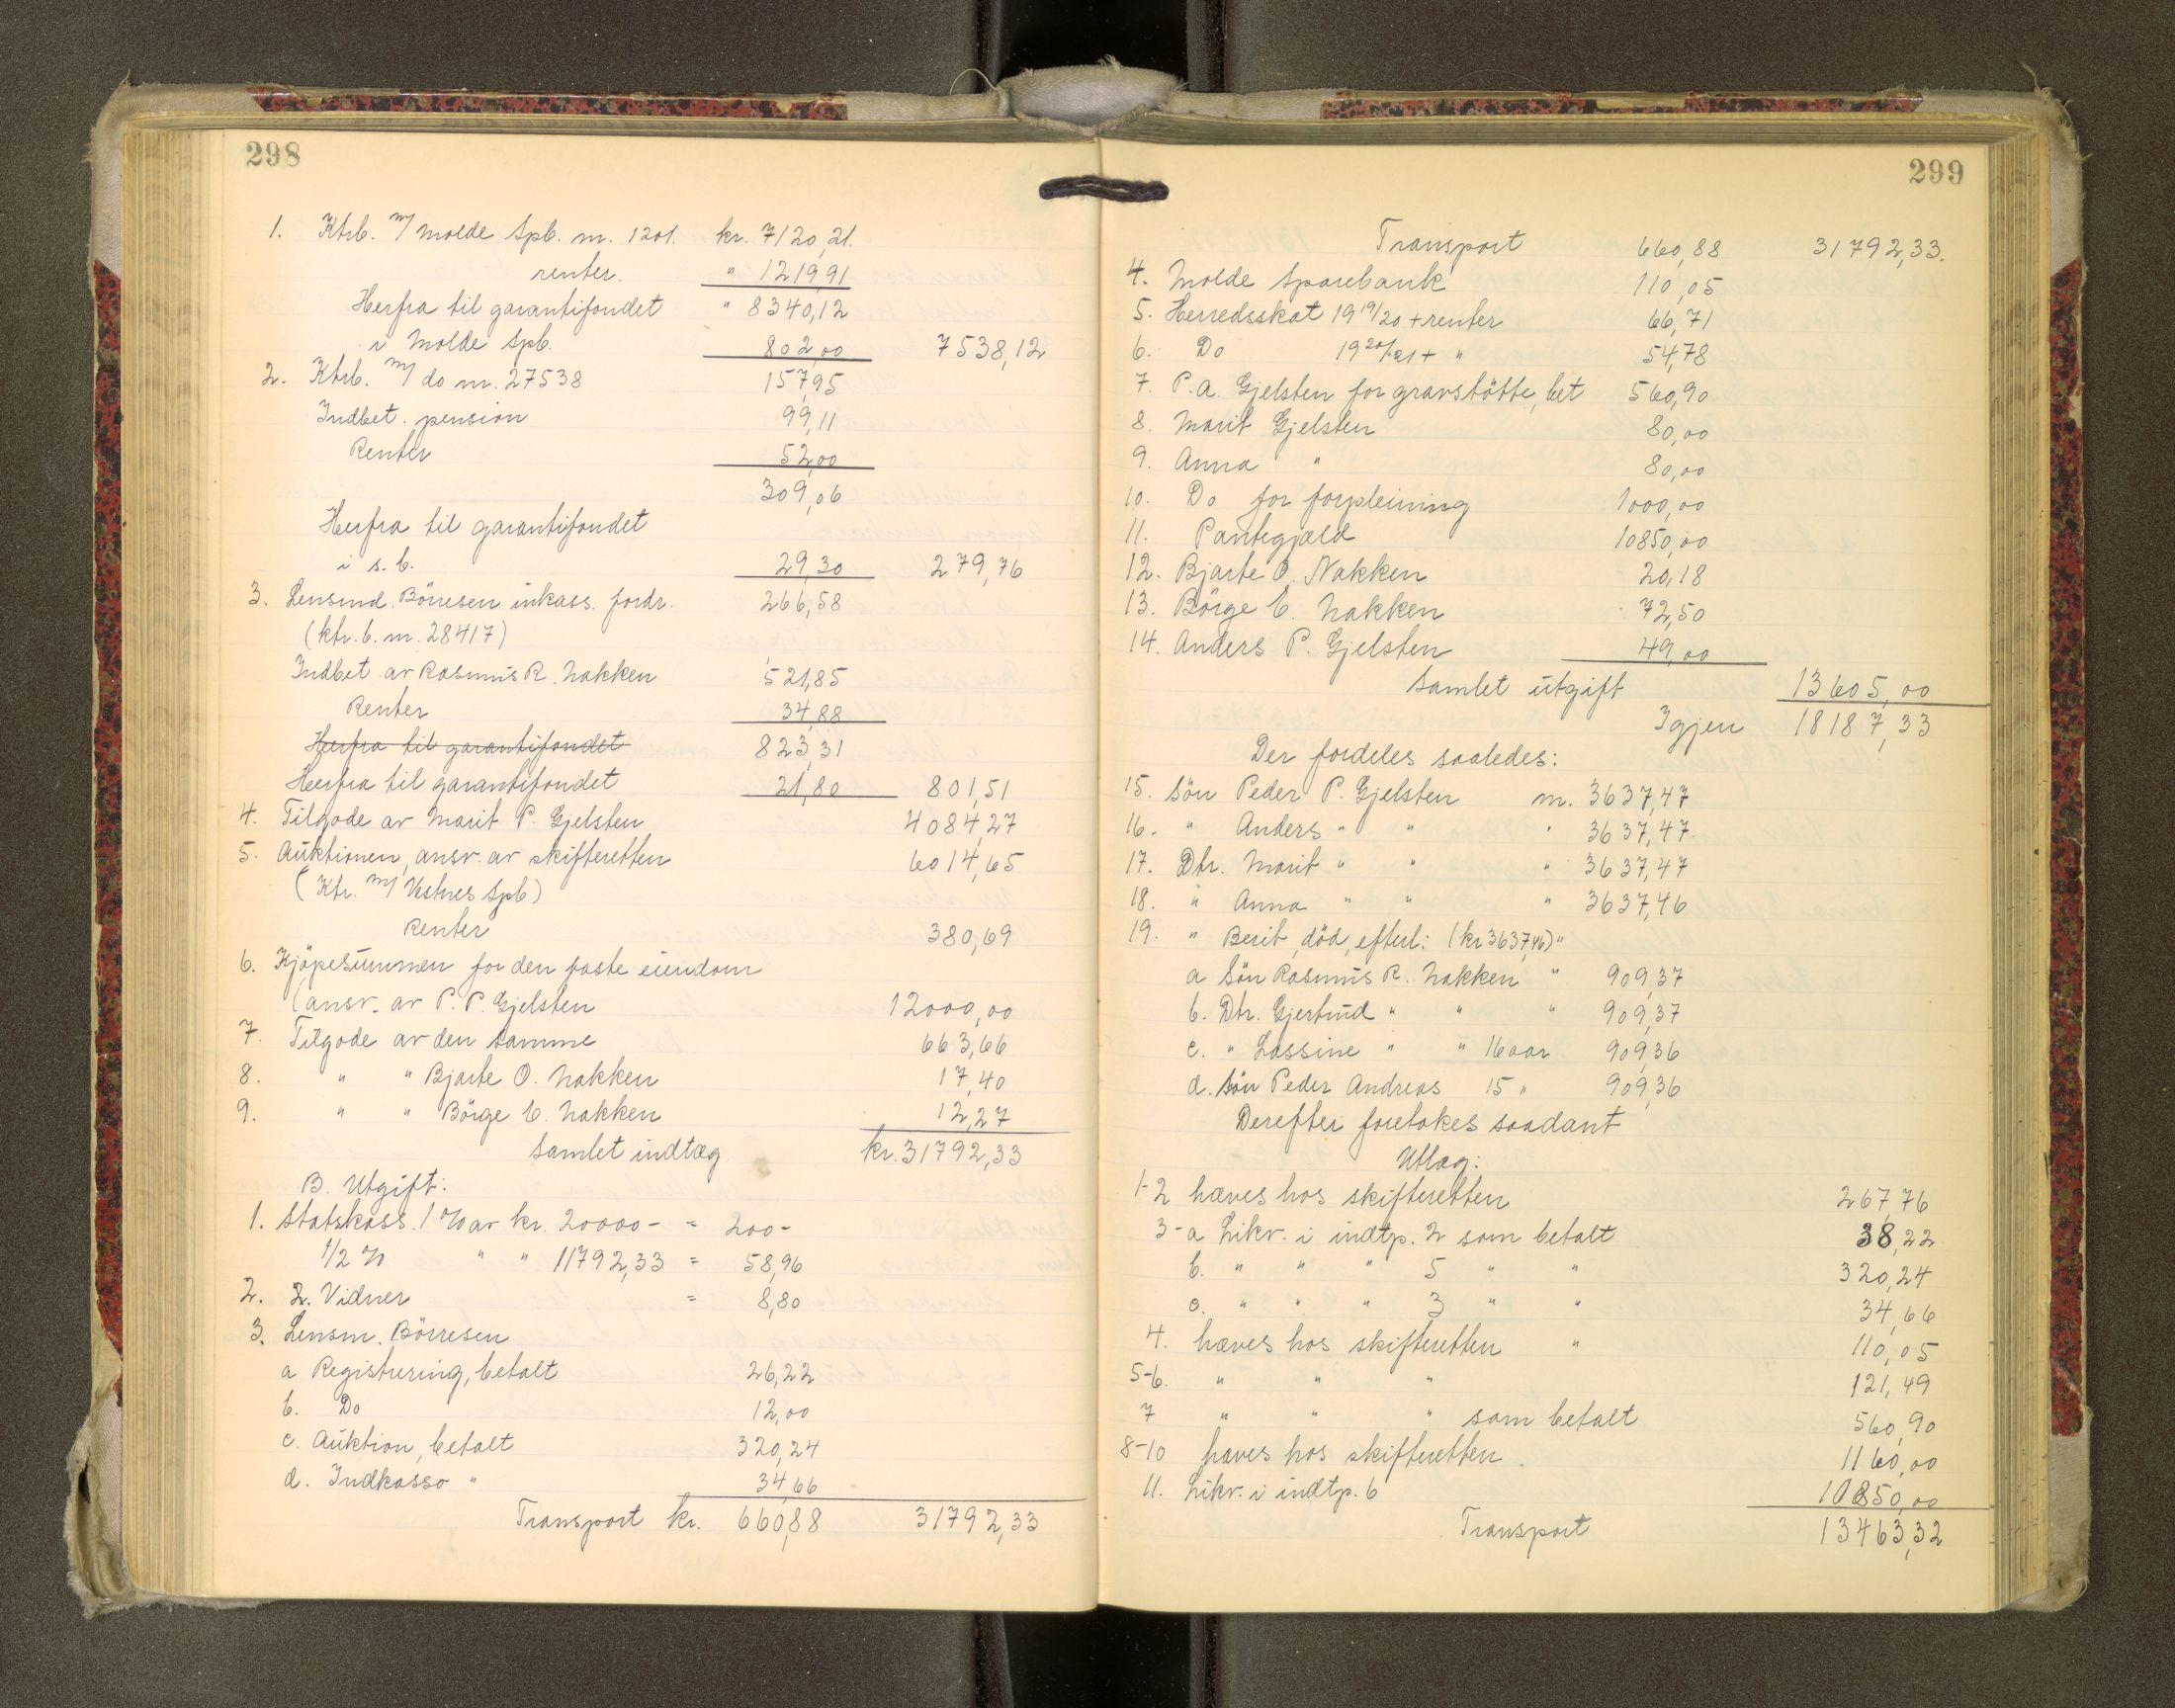 298
1. Ktrb. m/ Molde Spb. nr. 1201. kr. 7120,21.
renter. " 1219,91
Herfra til garantifondet " 8340,12
i Molde Spb. 802,00 7538,12
2. Ktrb. m/ do nr. 27538 157,95
Indbet. pension 99,11
Renter 52,00
309,06
Herfra til garantifondet
i s. b. 29,30 279,76
3. Lensmd. Börresen inkass. fordr. 266,58
(ktr. b. nr. 28417)
Indbet av Rasmus R. Nakken 521,85
Renter 34,88
Herfra til garantifondet 823,31
Herfra til garantifondet 21,80 801,51
4. Tilgode av Marit P. Gjelsten 4084,27
5. Auktionen, ansv. av skifteretten 6014,65
(Ktr. m/ Vestnes Spb)
Renter 380,69
6. Kjöpesummen for den faste eiendom
(ansv. av P. P. Gjelsten 12000,00
7. Tilgode av den samme 663,66
8. " " Bjarte O. Nakken 17,40
9. " " Börge E. Nakken 12,27
Samlet indtæg kr. 31792,33
B. Utgift:
1. Statskass. 1 % av kr. 20000 - = 200 -
1/2 % " " 11792,33 = 58,96
2. 2. Vidner = 8,80
3. Lensm. Börresen
a Registrering, betalt 26,22
b. Do 12,00
c. Auktion, betalt 320,24
d. Indkasso " 34,66
Transport kr. 660,88 31792,33
299
Transport 660,88 31792,33.
4. Molde Sparebank 110,05
5. Herredsskat 1919/20 + renter 66,71
6. Do 1920/21 + " 54,78
7. P. a. Gjelsten for gravstötte, bet 560,90
8. Marit Gjelsten 80,00
9. Anna " 80,00
10. Do for forpleining 1000,00
11. Pantegjæld 10850,00
12. Bjarte O. Nakken 20,18
13. Börge E. Nakken 72,50
14. Anders P. Gjelsten 49,00
Samlet utgift 13605,00
Igjen 18187,33
Der fordeles saaledes:
15. Sön Peder P. Gjelsten m. 3637,47
16. " Anders " " " 3637,47.
17. Dtr. Marit " " " 3637,47
18. " Anna " " " 3637,46
19. " Berit, död, efterl: (kr 3637,46) "
a Sön Rasmus R. Nakken " 909,37
b. Dtr. Gjertrud " " " 909,37
c. " Lassine " " 16 aar 909,36
d. Sön Peder Andreas 15 " 909,36
Derefter foretakes saadant
Utlæg:
1-2 hæves hos skifteretten 267,76
3-a Likv. i indtp. 2 som betalt 38,22
b. " " " 5 " " 320,24
c. " " " 3 " " 34,66
4. hæves hos skifteretten " 110,05
5-6. " " " 121,49
7 " " " som betalt 560,90
8-10 hæves hos skifteretten. 1160,00
11. Likv. i indtp. 6 10850,00
Transport 13463,32